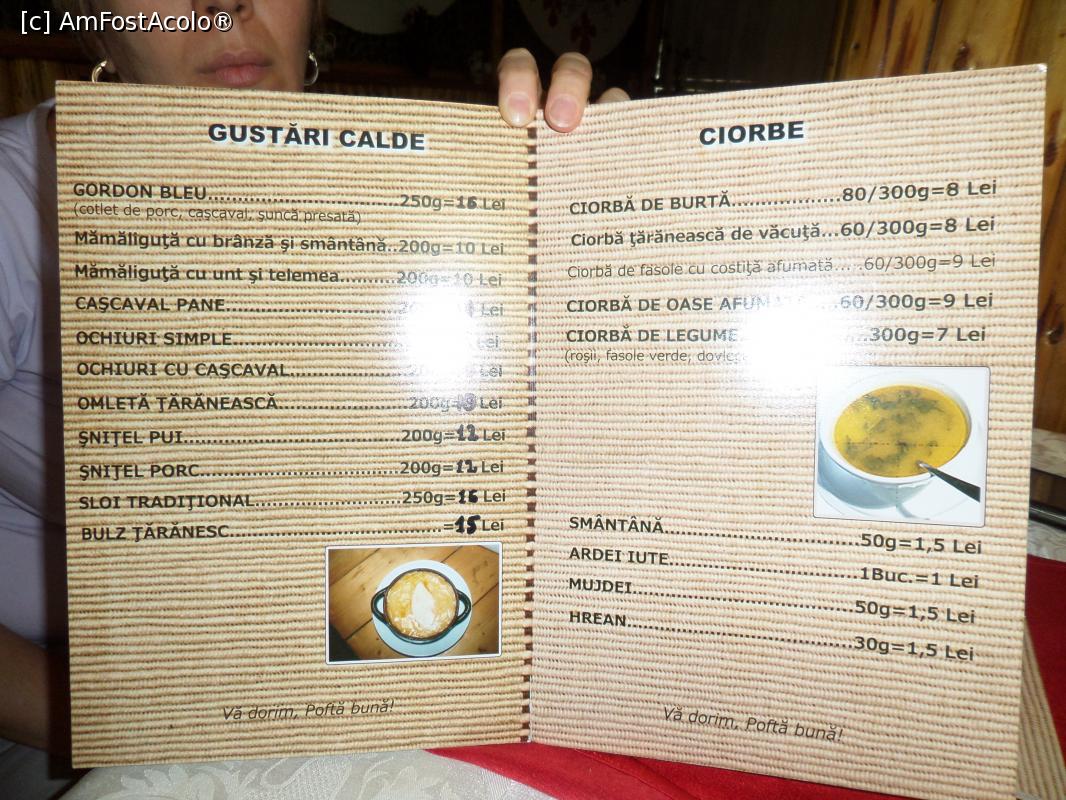 [c] AmFostAcolo®
GUSTĂRI CALDE
GORDON BLEU...............................250g=16 Lei
(cotlet de porc, caşcaval, şuncă presată)
Mămăliguţă cu brânză şi smântână..200g=10 Lei
Mămăliguţă cu unt şi telemea..........200g=10 Lei
CAŞCAVAL PANE............................ Lei
OCHIURI SIMPLE........................... Lei
OCHIURI CU CAŞCAVAL.................... Lei
OMLETĂ ŢĂRĂNEASCĂ......................200g= Lei
ŞNIŢEL PUI....................................200g=12 Lei
ŞNIŢEL PORC.................................200g=12 Lei
SLOI TRADIŢIONAL.........................250g=16 Lei
BULZ ŢĂRĂNESC....................................=15 Lei
Vă dorim, Poftă bună!
CIORBE
CIORBĂ DE BURTĂ...................80/300g=8 Lei
Ciorbă ţărănească de văcuţă...60/300g=8 Lei
Ciorbă de fasole cu costiţă afumată.....60/300g=9 Lei
CIORBĂ DE OASE ...60/300g=9 Lei
CIORBĂ DE LEGUME...300g=7 Lei
(roşii, fasole verde,
SMÂNTÂNĂ................................50g=1,5 Lei
ARDEI IUTE...............................1Buc.=1 Lei
MUJDEI.....................................50g=1,5 Lei
HREAN......................................30g=1,5 Lei
Vă dorim, Poftă bună!